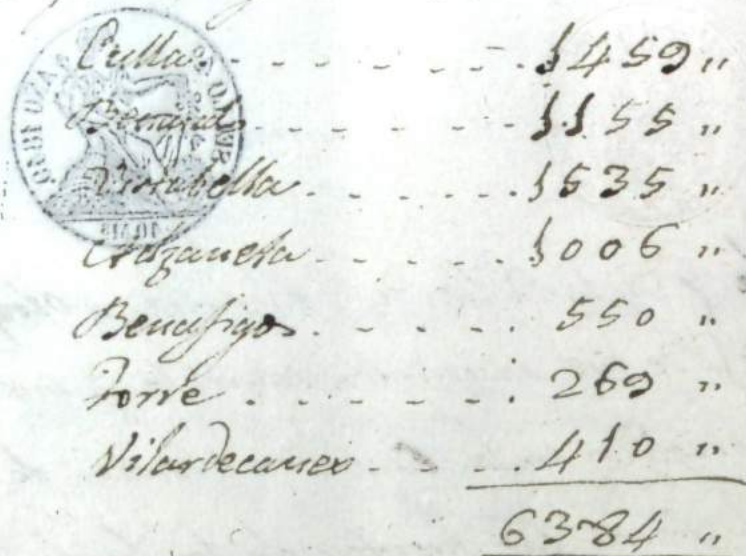 Culla - - - - - - - 1459 "
Benasal - - - - - - 1155 "
Vistabella - - - - - 1535 "
Adzaneta - - - - - 1006 "
Benafigos - - - - - 550 "
Torre - - - - - - - 269 "
Vilardecanes - - - - 410 "
6384 "